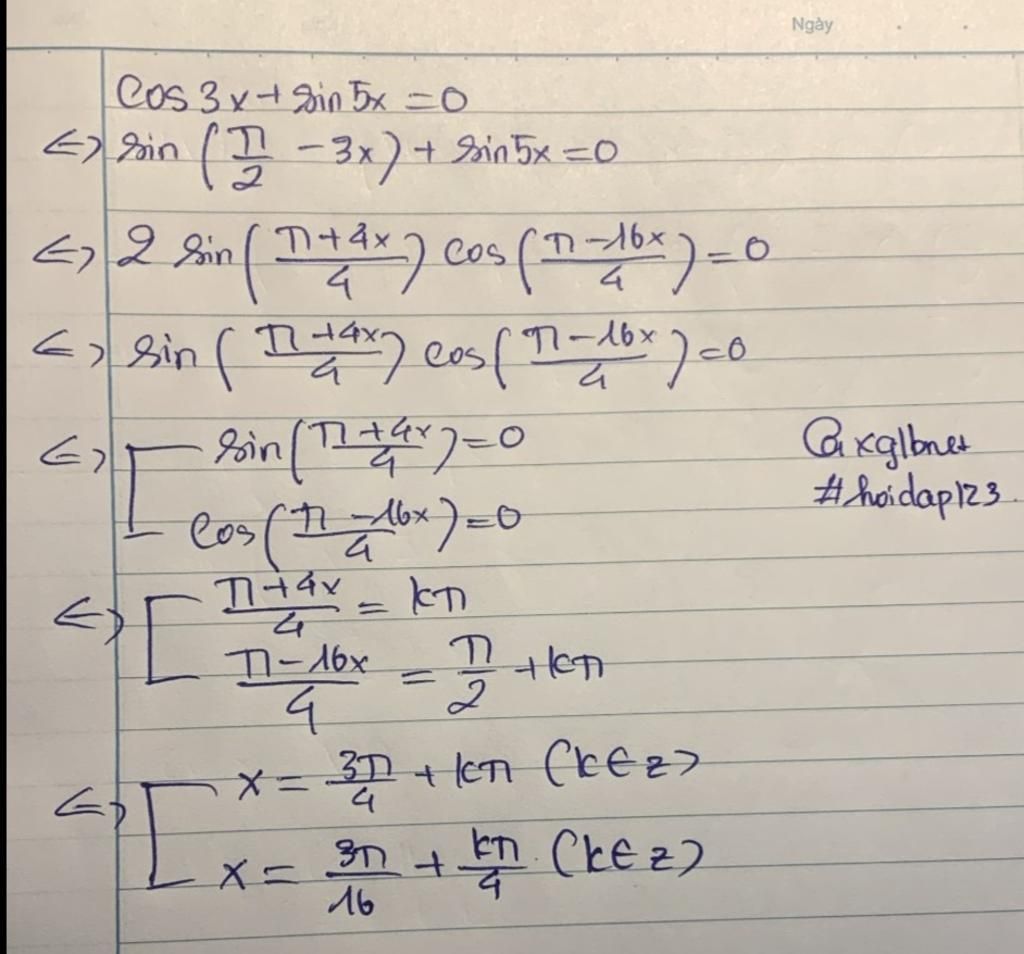 Ngày
cos 3x + sin 5x = 0
<=> sin (π/2 - 3x) + sin 5x = 0
<=> 2 sin (π+4x/4) cos (π-16x/4) = 0
<=> sin (π+4x/4) cos (π-16x/4) = 0
<=> [ sin (π+4x/4) = 0
cos (π-16x/4) = 0
@xglbnet
#hoidap123
<=> [ π+4x/4 = kπ
π-16x/4 = π/2 + kπ
<=> [ x = 3π/4 + kπ (k∈z)
x = 3π/16 + kπ/4 (k∈z)